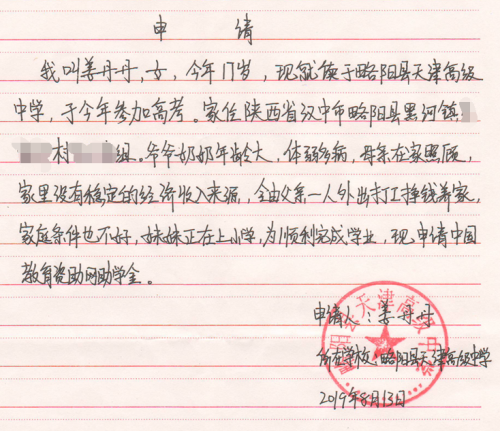 申 请
我叫姜丹丹,女,今年17岁,现就读于略阳县天津高级
中学,于今年参加高考。家住陕西省汉中市略阳县黑河镇
村 组。爷爷奶奶年龄大,体弱多病,母亲在家照顾,
家里没有稳定的经济收入来源,全由父亲一人外出打工挣钱养家,
家庭条件也不好,妹妹正在上小学,为顺利完成学业,现申请中国
教育资助网助学金。
申请人:姜丹丹
所在学校:略阳县天津高级中学
2019年8月13日
略阳县天津高级中学